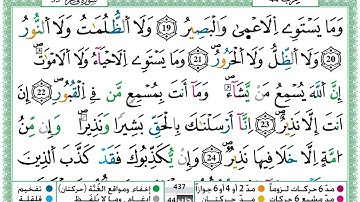 وَمَا يَسْتَوِي الْأَعْمَىٰ وَالْبَصِيرُ ۝١٩ وَلَا الظُّلُمَاتُ وَلَا النُّورُ
۝٢٠ وَلَا الظِّلُّ وَلَا الْحَرُورُ ۝٢١ وَمَا يَسْتَوِي الْأَحْيَاءُ وَلَا الْأَمْوَاتُ
إِنَّ اللَّهَ يُسْمِعُ مَنْ يَشَاءُ وَمَا أَنْتَ بِمُسْمِعٍ مَنْ فِي الْقُبُورِ ۝٢٢
إِنْ أَنْتَ إِلَّا نَذِيرٌ ۝٢٣ إِنَّا أَرْسَلْنَاكَ بِالْحَقِّ بَشِيرًا وَنَذِيرًا وَإِنْ مِنْ
أُمَّةٍ إِلَّا خَلَا فِيهَا نَذِيرٌ ۝٢٤ وَإِنْ يُكَذِّبُوكَ فَقَدْ كَذَّبَ الَّذِينَ
مدّ 6 حركات لزوماً مدّ 2 أو 4 أو 6 جوازاً 437 إخفاء ومواقع الغُنَّة (حركتان) تفخيم
حركات مدّ حركتان 44 إدغام، وما لا يُلفظ قلقلة